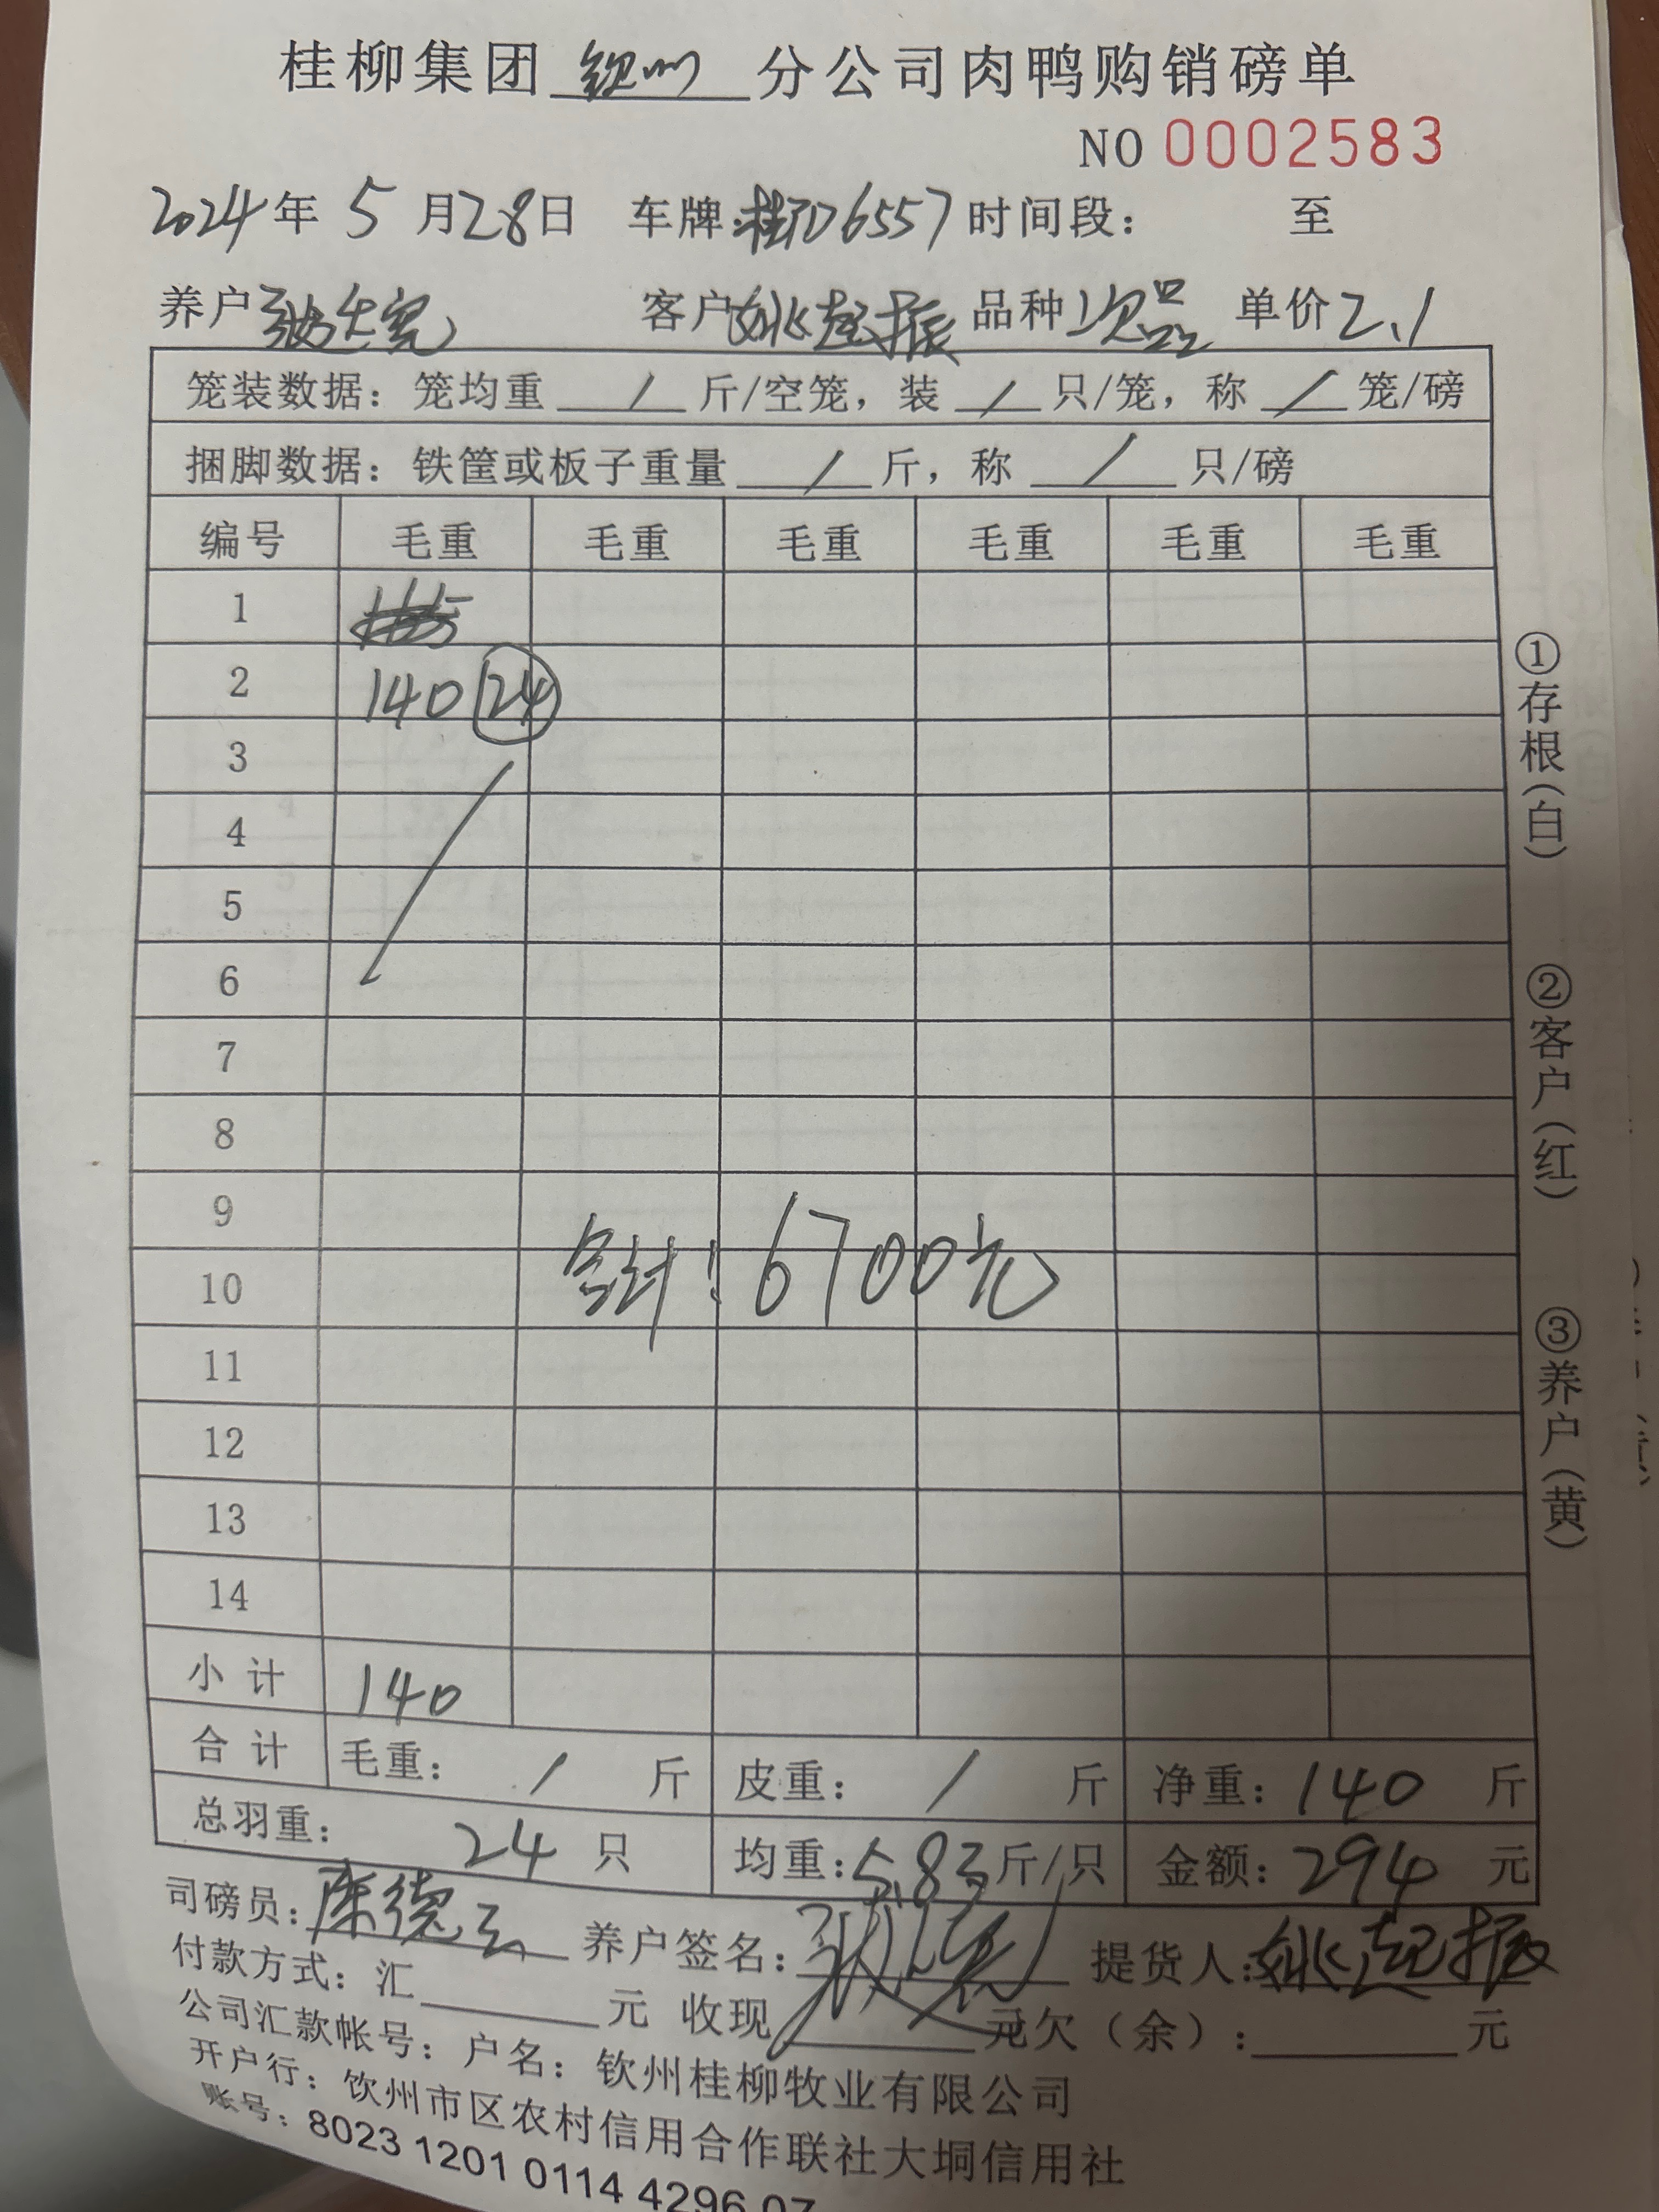 桂柳集团 钦州 分公司肉鸭购销磅单
NO 0002583
2024年 5 月28日 车牌:桂 D6557 时间段: 至
养户 客户 姚起振 品种 次品 单价 2.1
笼装数据:笼均重 / 斤/空笼,装 / 只/笼,称 / 笼/磅
捆脚数据:铁筐或板子重量 / 斤,称 / 只/磅
编号 毛重 毛重 毛重 毛重 毛重 毛重
1
2 140 24
3
4
5
6
7
8
9
合计: 6700元
10
11
12
13
14
小计 140
合计 毛重: / 斤 皮重: / 斤 净重: 140 斤
总羽重: 24 只 均重: 5.83 斤/只 金额: 294 元
司磅员: 德 养户签名: 提货人: 姚起振
付款方式:汇 元 收现 元欠(余): 元
公司汇款帐号:户名:钦州桂柳牧业有限公司
开户行:钦州市区农村信用合作联社大垌信用社
账号:8023 1201 0114 4296 07
①存根(白)
②客户(红)
③养户(黄)